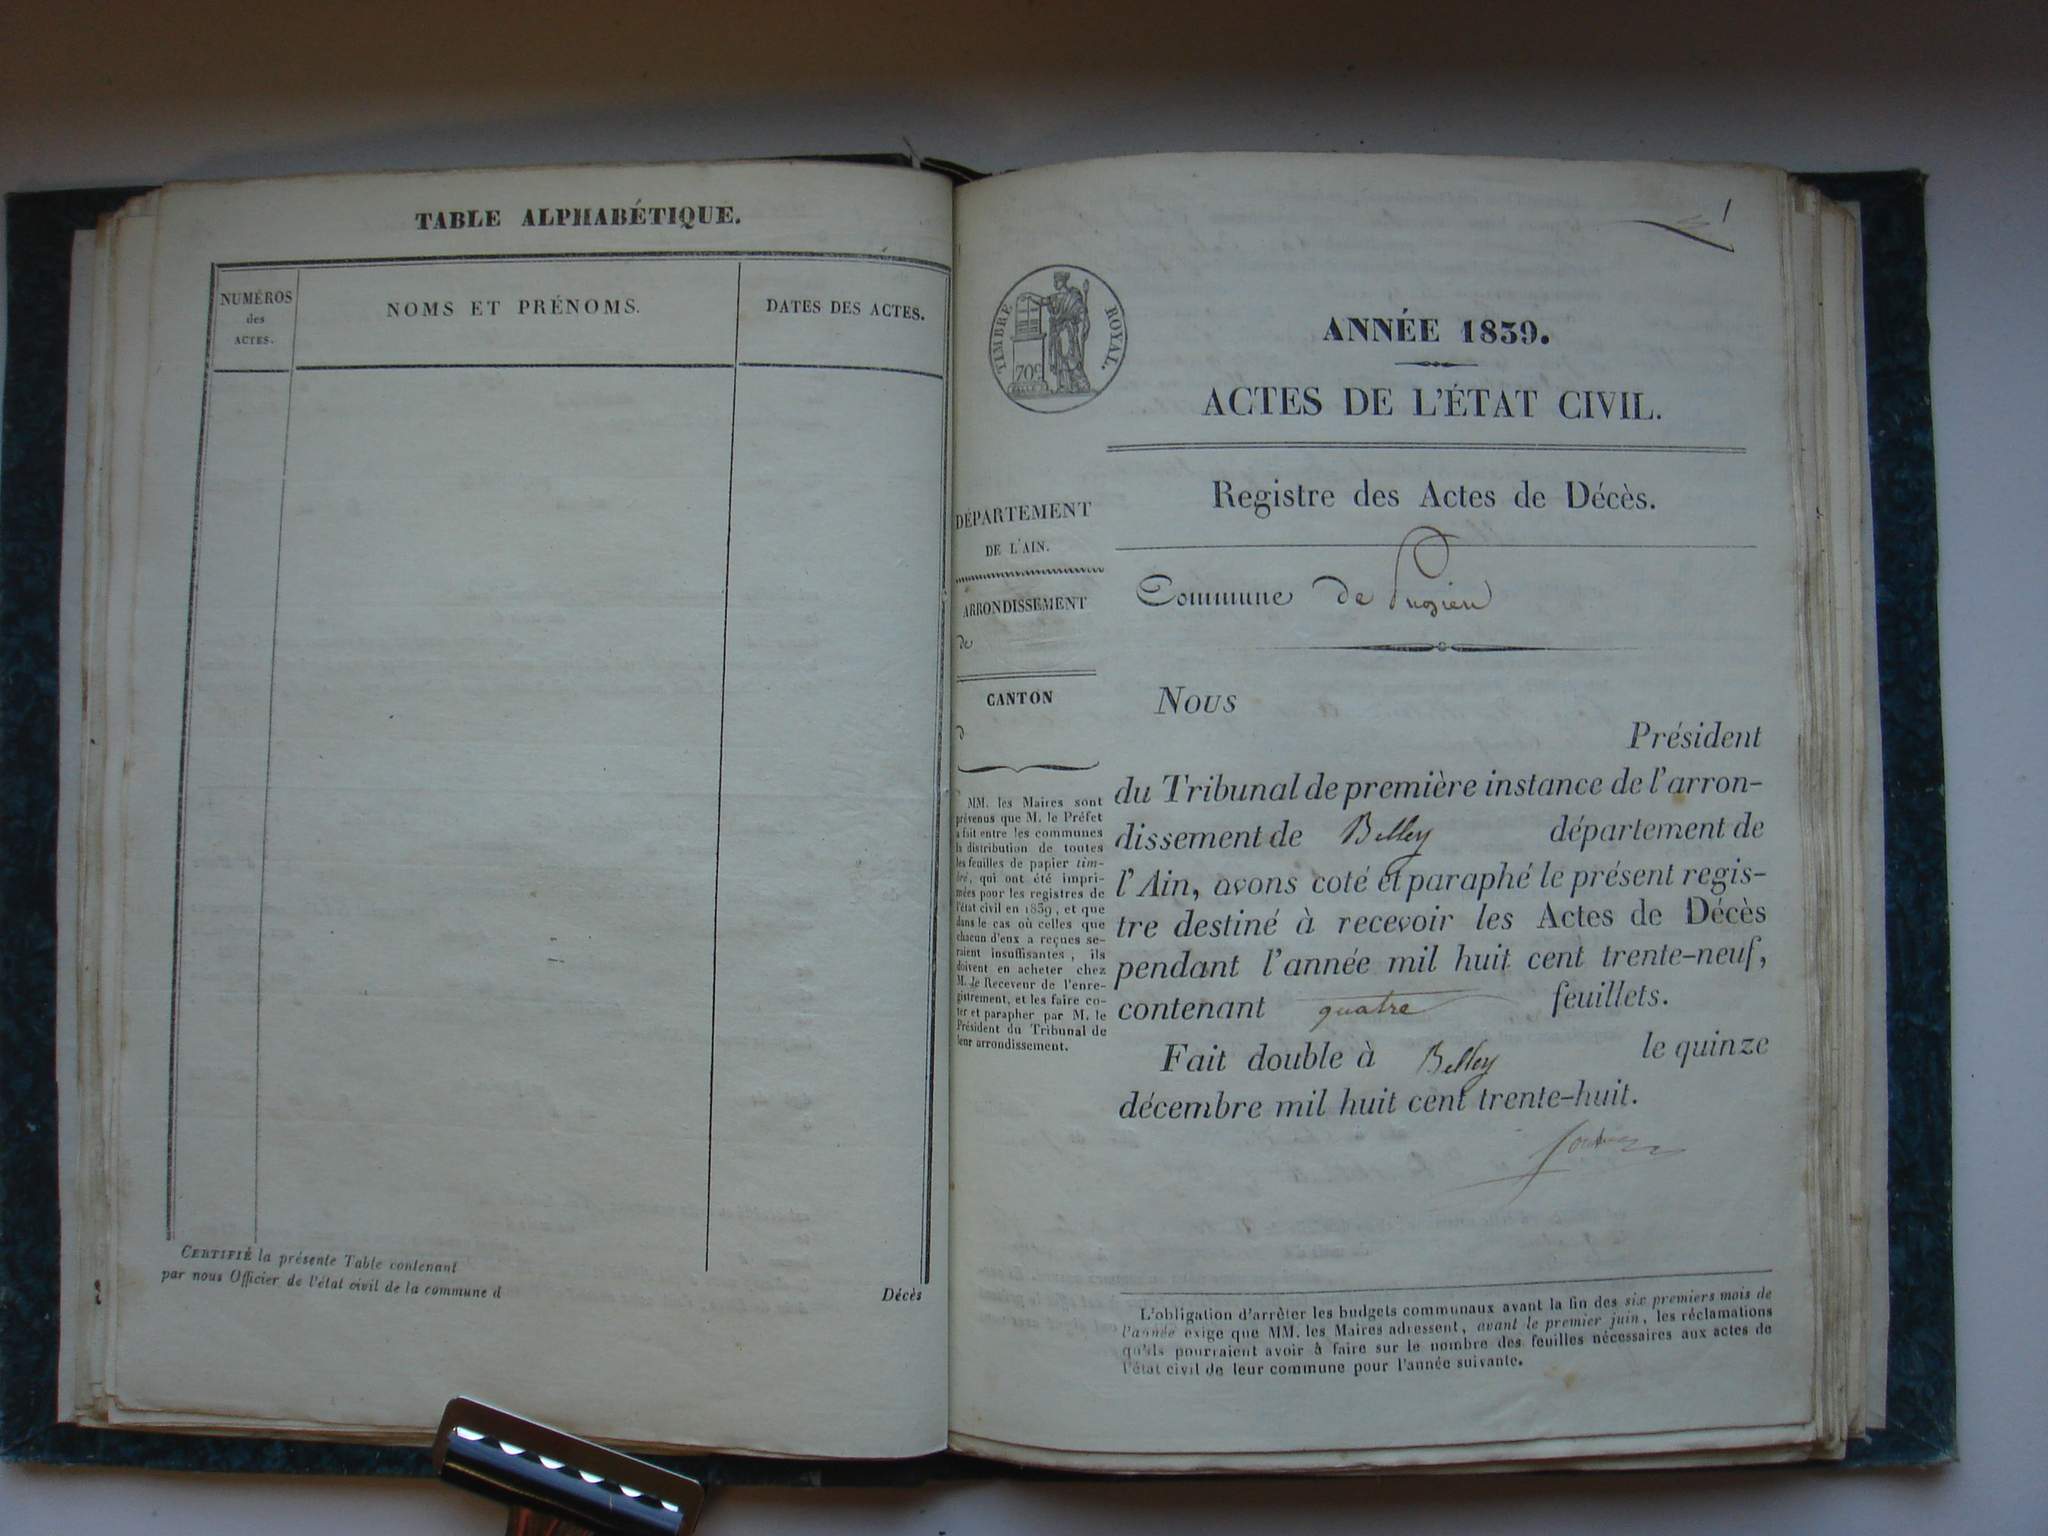 TABLE ALPHABÉTIQUE.
NUMÉROS
des
ACTES.
NOMS ET PRÉNOMS.
DATES DES ACTES.
CERTIFIÉ la présente Table contenant
par nous Officier de l'état civil de la commune d
Décès
1
TIMBRE ROYAL.
70c
ANNÉE 1839.
ACTES DE L'ÉTAT CIVIL.
Registre des Actes de Décès.
DÉPARTEMENT
DE L'AIN.
ARRONDISSEMENT
de
CANTON
d
MM. les Maires sont
prévenus que M. le Préfet
a fait entre les communes
la distribution de toutes
les feuilles de papier tim-
bré, qui ont été impri-
mées pour les registres de
l'état civil en 1839, et que
dans le cas où celles que
chacun d'eux a reçues se-
raient insuffisantes, ils
doivent en acheter chez
M. le Receveur de l'enre-
gistrement, et les faire co-
ter et parapher par M. le
Président du Tribunal de
leur arrondissement.
Commune de Pugieu
Nous
Président
du Tribunal de première instance de l'arron-
dissement de Belley département de
l'Ain, avons coté et paraphé le présent regis-
tre destiné à recevoir les Actes de Décès
pendant l'année mil huit cent trente-neuf,
contenant quatre feuillets.
Fait double à Belley le quinze
décembre mil huit cent trente-huit.
L'obligation d'arrêter les budgets communaux avant la fin des six premiers mois de
l'année exige que MM. les Maires adressent, avant le premier juin, les réclamations
qu'ils pourraient avoir à faire sur le nombre des feuilles nécessaires aux actes de
l'état civil de leur commune pour l'année suivante.